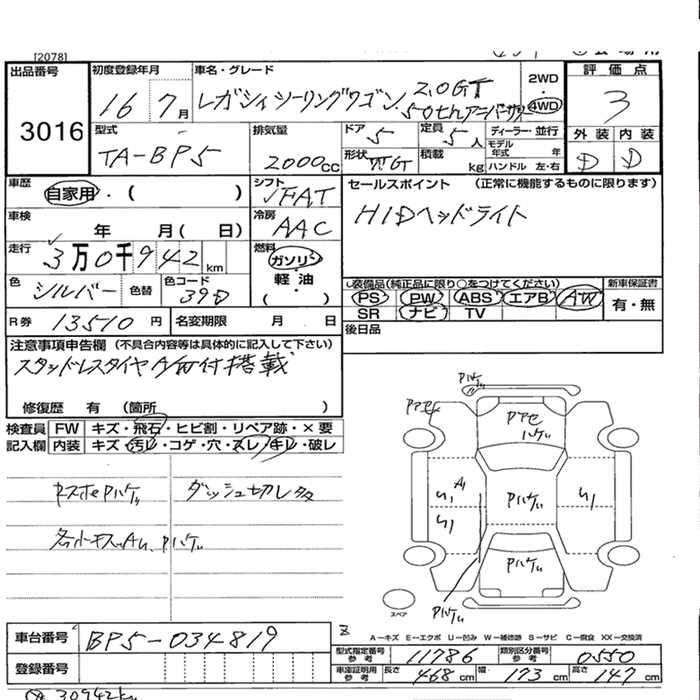 [2078]
出品番号 初度登録年月 車名・グレード 2WD 評価点
3016 16 7月 レガシィツーリングワゴン 2.0GT 50thアニバーサリ 4WD 3
型式 排気量 ドア 定員 ディーラー・並行 外装 内装
TA-BP5 2000cc 5 5人 モデル年式 年 D D
形状 積載 kg ハンドル 左・右
車歴 自家用・( ) シフト FAT セールスポイント (正常に機能するものに限ります)
車検 年 月( 日) 冷房 AAC HIDヘッドライト
走行 3万0千942km 燃料 ガソリン
色 シルバー 色替 色コード 39D 軽・油 ( )
装備品(純正品に限り○をつけてください) 新車保証書
PS PW ABS エアB AW 有・無
SR ナビ TV
R券 13510円 名変期限 月 日 後日品
注意事項申告欄 (不具合内容等は具体的に記入して下さい)
スタッドレスタイヤA/W付搭載
修復歴 有 (箇所 )
検査員 FW キズ・飛石・ヒビ割・リペア跡・×要
記入欄 内装 キズ・汚レ・コゲ・穴・スレ/キレ・破レ
Pハゲ
アセ
Pアセ
ハゲ
A
Pハゲ
ダッシュ切レ
各小キズAU、Pハゲ
Pハゲ
Pハゲ
スペア
車台番号 BP5-034819
A−キズ E−エクボ U−凹み W−補修跡 S−サビ C−腐食 XX−交換済
登録番号
型式指定番号 参考 11786 類別区分番号 参考 0550
車庫証明用 参考 長さ 468cm 幅 173cm 高さ 147cm
30942km